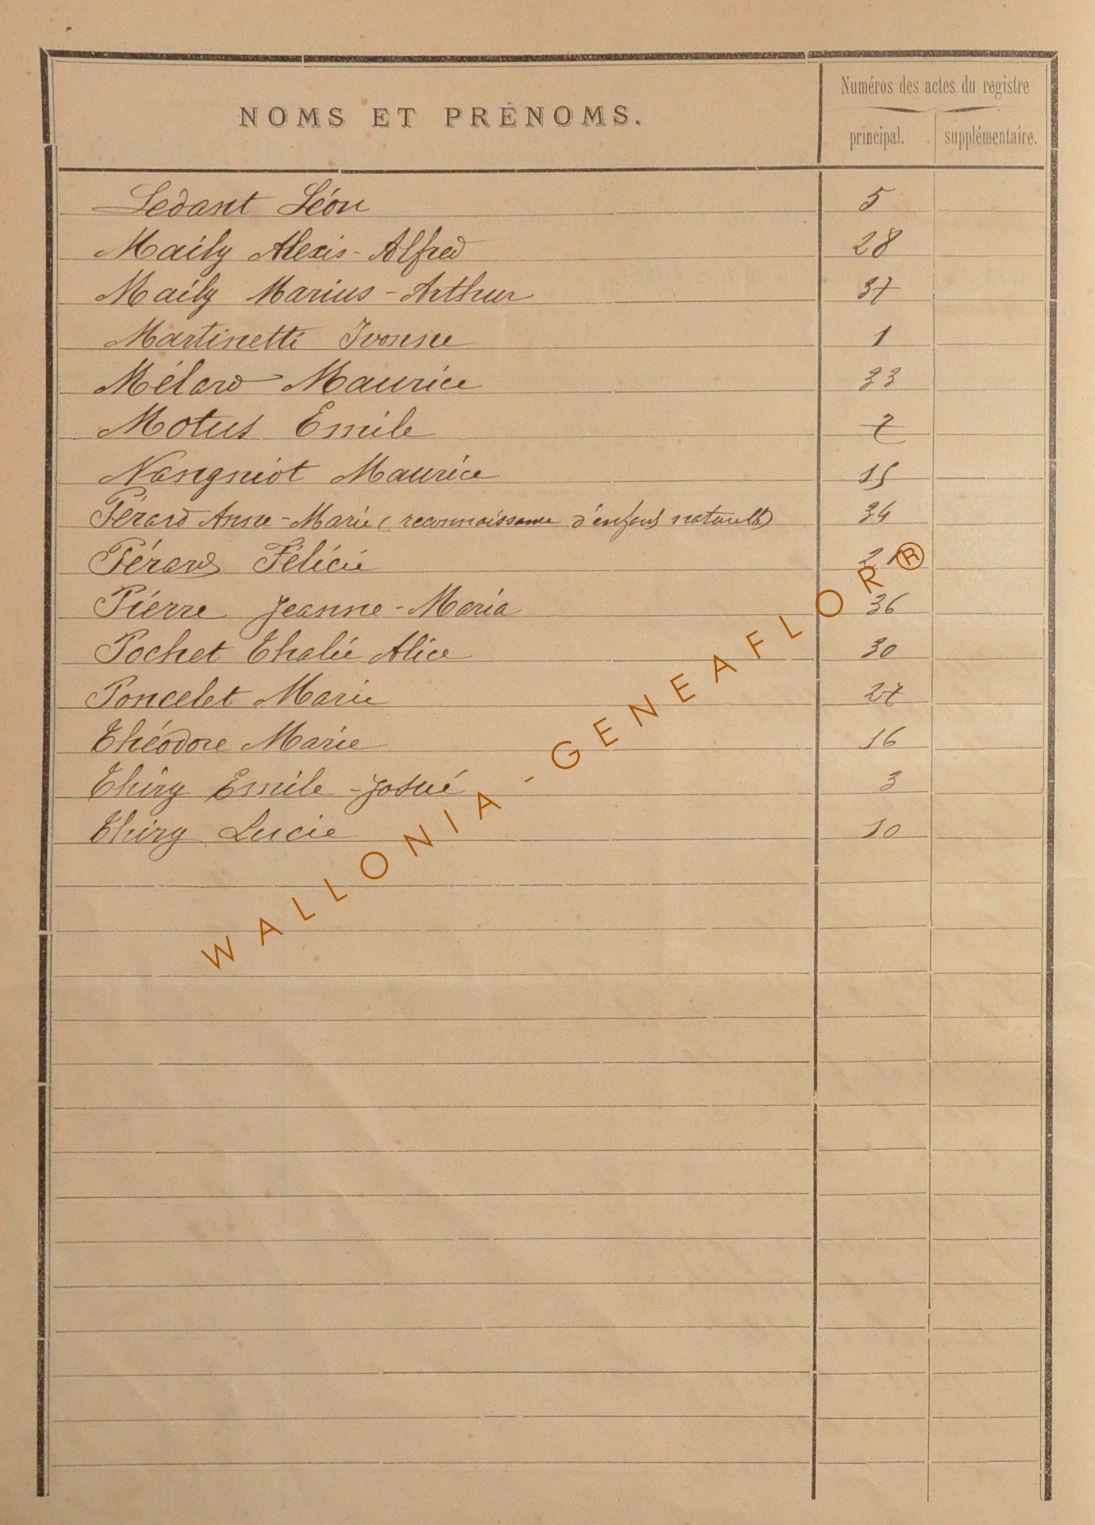 NOMS ET PRÉNOMS.
Numéros des actes du registre
principal.
supplémentaire.
Ledant Léon 5
Maily Alexis-Alfred 28
Maily Marius-Arthur 37
Martinetti Ivonne 1
Mélard Maurice 33
Motus Emile 7
Nangniot Maurice 15
Pérard Anne-Marie (reconnaissance d'enfant naturel) 34
Pérard Félicie
Piérre Jeanne-Maria 36
Pochet Thalie Alice 30
Poncelet Marie 27
Théodore Marie 16
Thiry Emile-Josué 3
Thiry Lucie 10
WALLONIA-GENEAFLOR®